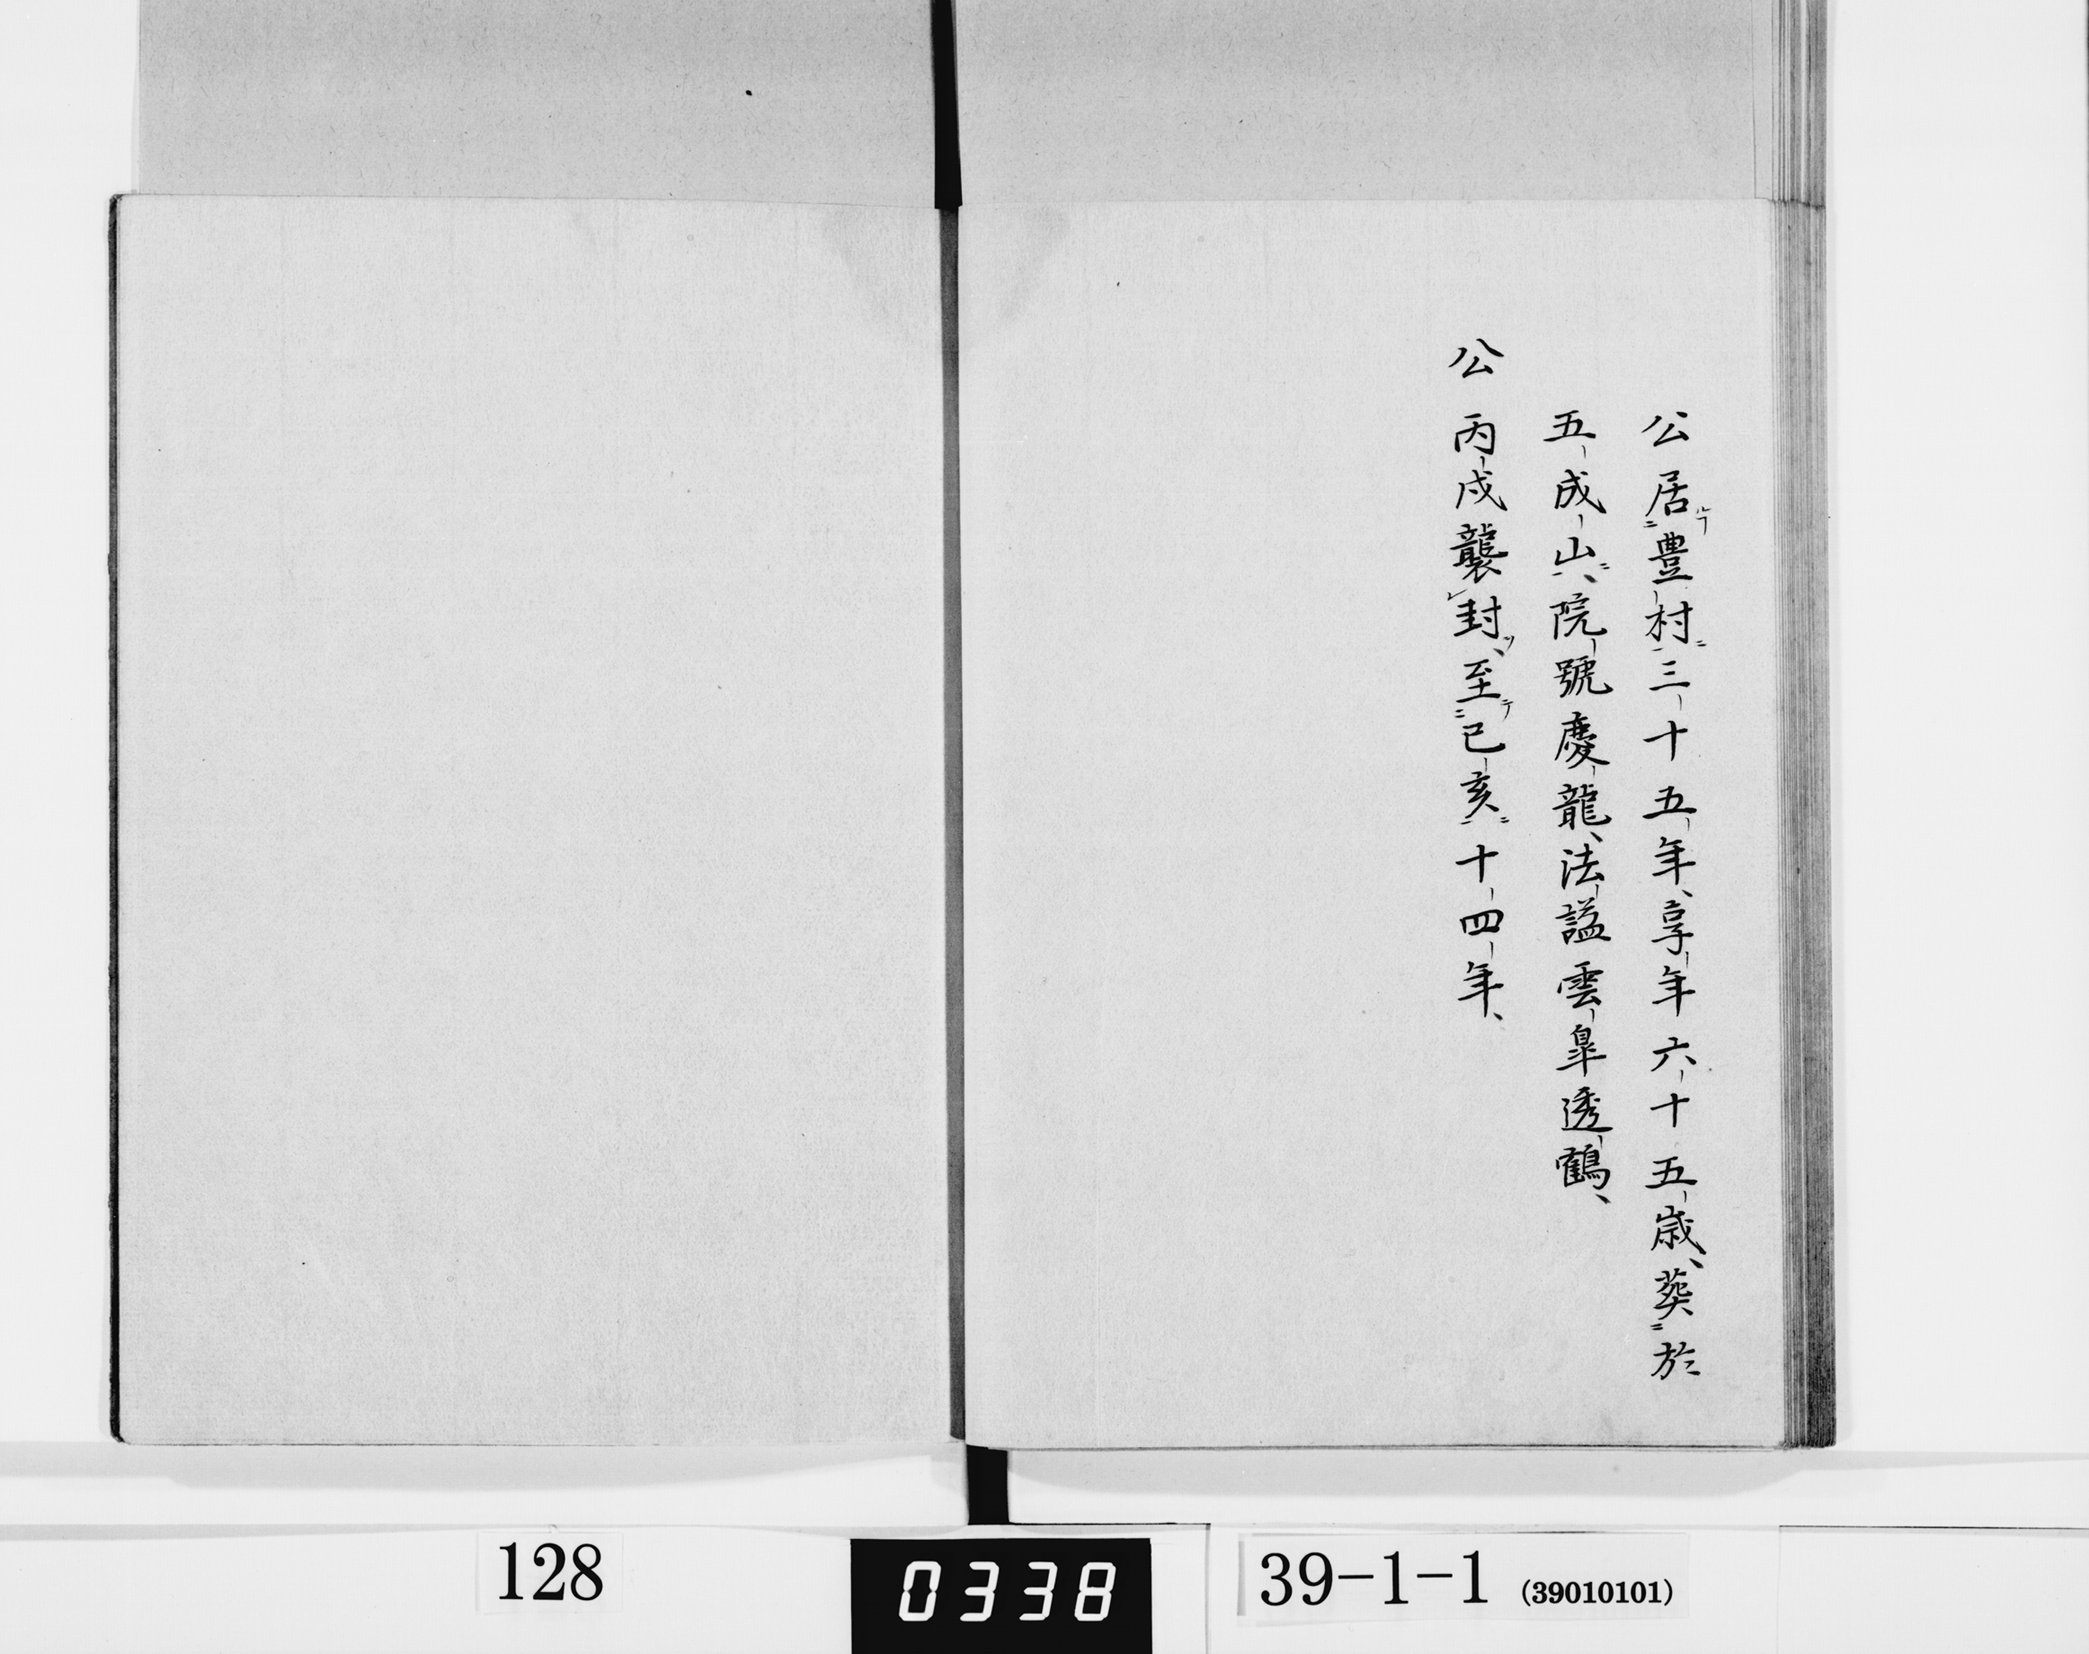 公居豊村三十五年、享年六十五歳、葬於
五成山、院號慶龍、法謚雲皐透鶴、
公丙戌襲封、至己亥十四年、
128
0338
39-1-1 (39010101)